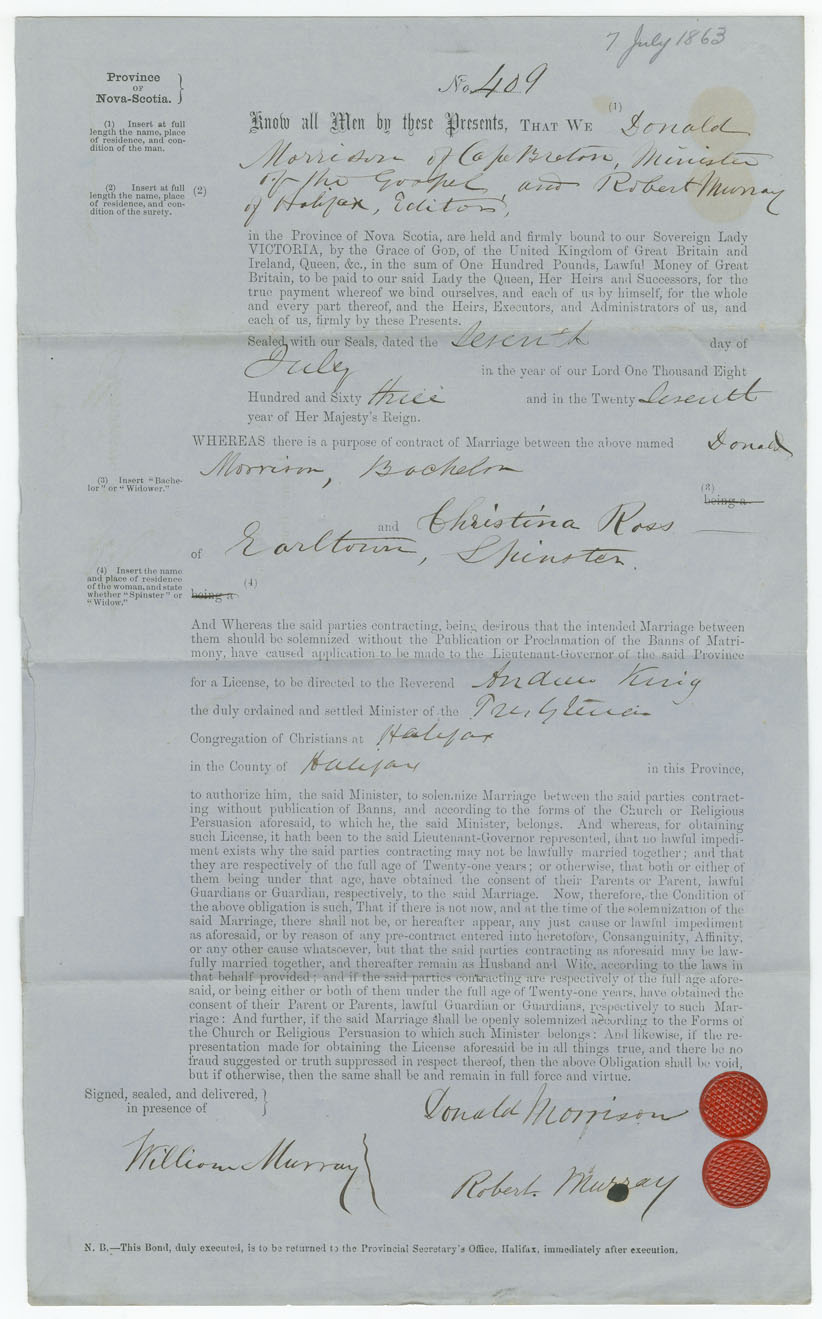 7 July 1863
Province
OF
Nova-Scotia.
No. 409
(1) Insert at full
length the name, place
of residence, and con-
dition of the man.
(1)
Know all Men by these Presents, THAT WE Donald
Morrison of Cape Breton, Minister
(2) Insert at full
length the name, place
of residence, and con-
dition of the surety.
(2)
of the Gospel, and Robert Murray
of Halifax, Editor,
in the Province of Nova Scotia, are held and firmly bound to our Sovereign Lady
VICTORIA, by the Grace of GOD, of the United Kingdom of Great Britain and
Ireland, Queen, &c., in the sum of One Hundred Pounds, Lawful Money of Great
Britain, to be paid to our said Lady the Queen, Her Heirs and Successors, for the
true payment whereof we bind ourselves, and each of us by himself, for the whole
and every part thereof, and the Heirs, Executors, and Administrators of us, and
each of us, firmly by these Presents.
Sealed with our Seals, dated the Seventh day of
July in the year of our Lord One Thousand Eight
Hundred and Sixty three and in the Twenty Seventh
year of Her Majesty's Reign.
WHEREAS there is a purpose of contract of Marriage between the above named Donald
Morrison, Bachelor
(3) Insert "Bache-
lor" or "Widower."
(3)
being a
and Christina Ross
of Earltown, Spinster.
(4) Insert the name
and place of residence
of the woman, and state
whether "Spinster" or
"Widow."
(4)
being a
And Whereas the said parties contracting, being desirous that the intended Marriage between
them should be solemnized without the Publication or Proclamation of the Banns of Matri-
mony, have caused application to be made to the Lieutenant-Governor of the said Province
for a License, to be directed to the Reverend Andrew King
the duly ordained and settled Minister of the Presbyterian
Congregation of Christians at Halifax
in the County of Halifax in this Province,
to authorize him, the said Minister, to solemnize Marriage between the said parties contract-
ing without publication of Banns, and according to the forms of the Church or Religious
Persuasion aforesaid, to which he, the said Minister, belongs. And whereas, for obtaining
such License, it hath been to the said Lieutenant-Governor represented, that no lawful impedi-
ment exists why the said parties contracting may not be lawfully married together; and that
they are respectively of the full age of Twenty-one years; or otherwise, that both or either of
them being under that age, have obtained the consent of their Parents or Parent, lawful
Guardians or Guardian, respectively, to the said Marriage. Now, therefore, the Condition of
the above obligation is such, That if there is not now, and at the time of the solemnization of the
said Marriage, there shall not be, or hereafter appear, any just cause or lawful impediment
as aforesaid, or by reason of any pre-contract entered into heretofore, Consanguinity, Affinity,
or any other cause whatsoever, but that the said parties contracting as aforesaid may be law-
fully married together, and thereafter remain as Husband and Wife, according to the laws in
that behalf provided; and if the said parties contracting are respectively of the full age afore-
said, or being either or both of them under the full age of Twenty-one years, have obtained the
consent of their Parent or Parents, lawful Guardian or Guardians, respectively to such Mar-
riage: And further, if the said Marriage shall be openly solemnized according to the Forms of
the Church or Religious Persuasion to which such Minister belongs: And likewise, if the re-
presentation made for obtaining the License aforesaid be in all things true, and there be no
fraud suggested or truth suppressed in respect thereof, then the above Obligation shall be void,
but if otherwise, then the same shall be and remain in full force and virtue.
Signed, sealed, and delivered,
in presence of
Donald Morrison
William Murray
Robert Murray
N. B.—This Bond, duly executed, is to be returned to the Provincial Secretary's Office, Halifax, immediately after execution.